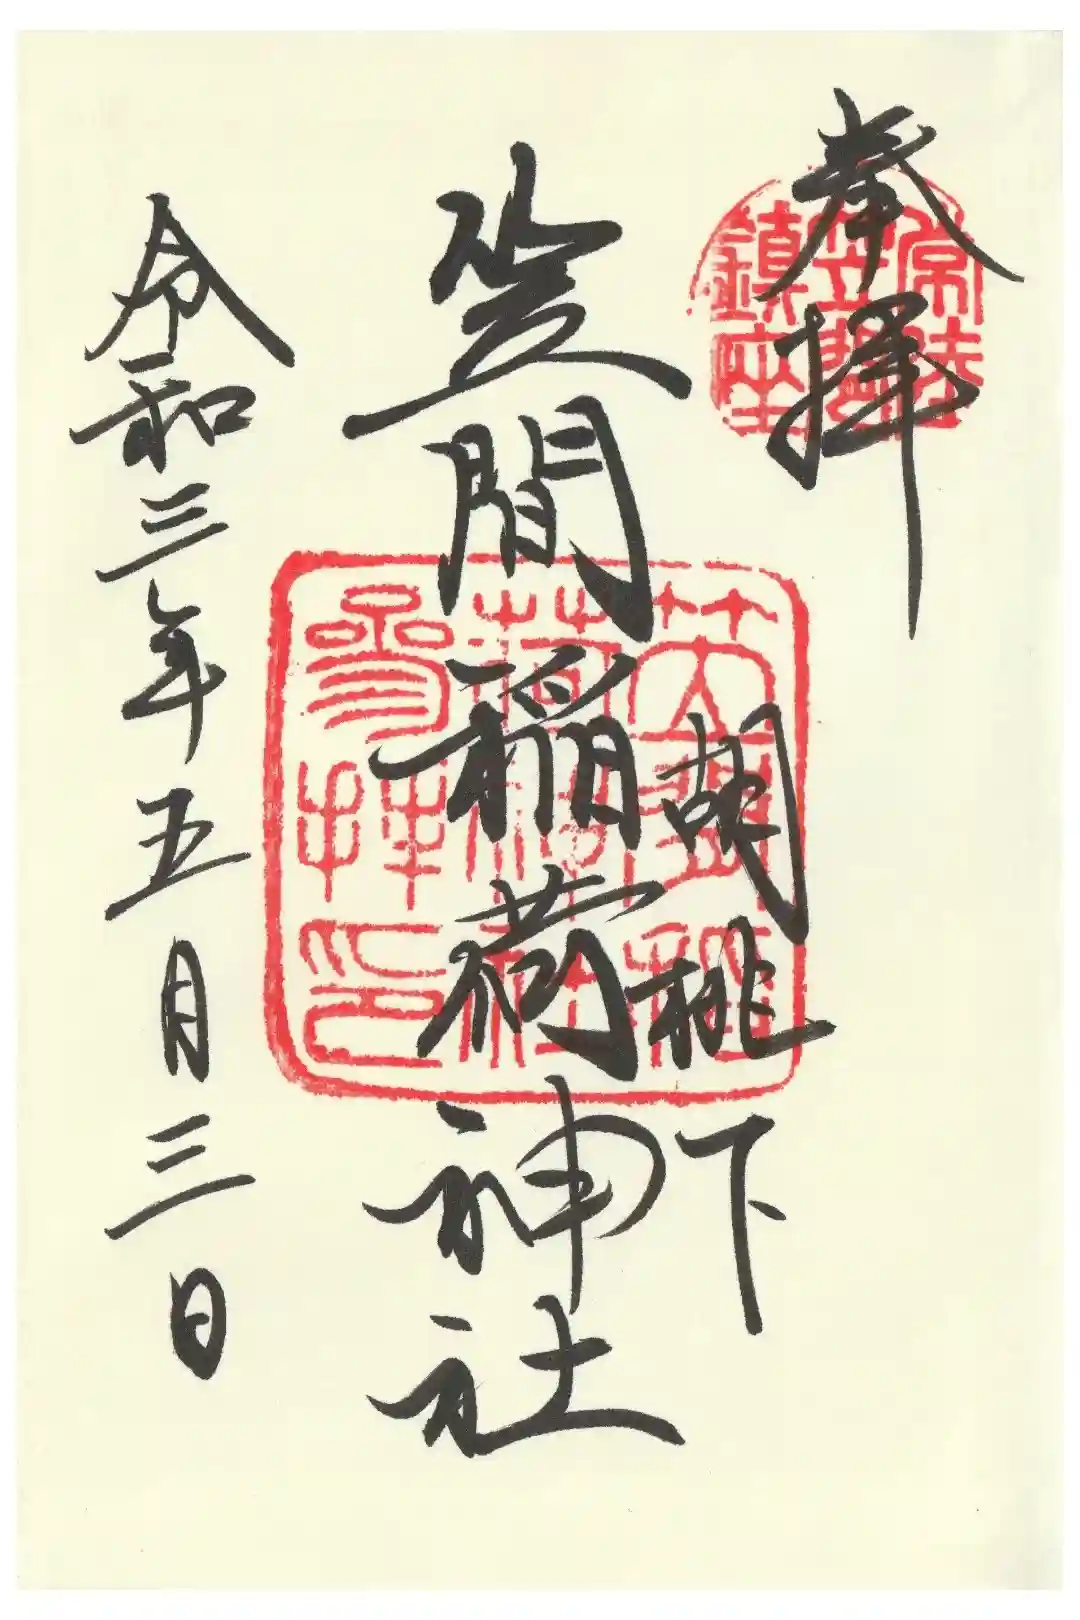 奉拝
常陸
笠間
鎮座
胡桃下
笠間稲荷神社
参拝印
令和三年五月三日